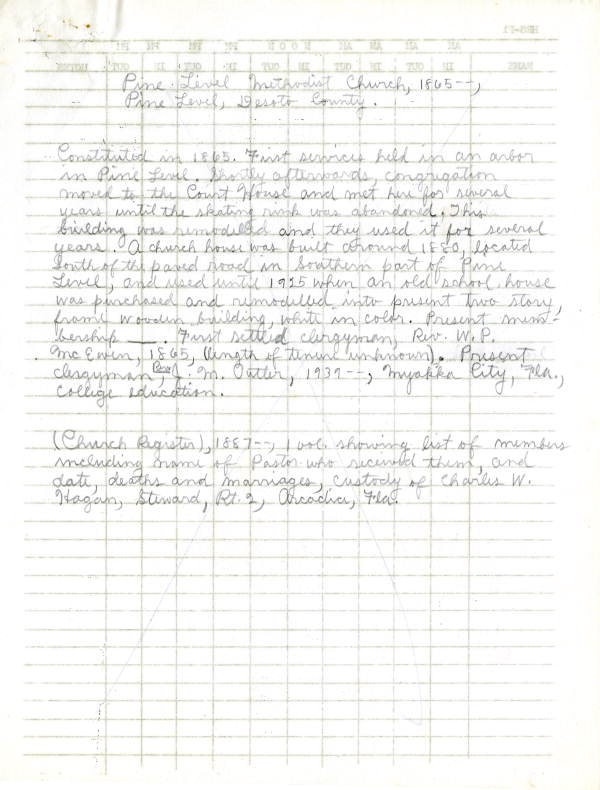 Pine Level Methodist Church, 1865--,
Pine Level, Desoto County.
Constituted in 1865. First services held in an arbor
in Pine Level. Shortly afterwards, congregation
moved to the Court House and met here for several
years until the skating rink was abandoned. This
building was remodeled and they used it for several
years. A church house was built around 1880, located
South of the paved road in Southern part of Pine
Level, and used until 1925 when an old school house
was purchased and remodelled into present two story,
frame wooden building, white in color. Present mem-
bership ___. First settled clergyman, Rev. W. P.
McEwen, 1865, (length of tenure unknown). Present
clergyman, Rev. J. M. 1939--, Myakka City, Fla.,
College education.
(Church Register), 1887--, 1 vol. showing list of members
including name of Pastor who received them, and
date, deaths and marriages, custody of Charles W.
Hagan, Steward, Rt. 2, Arcadia, Fla.